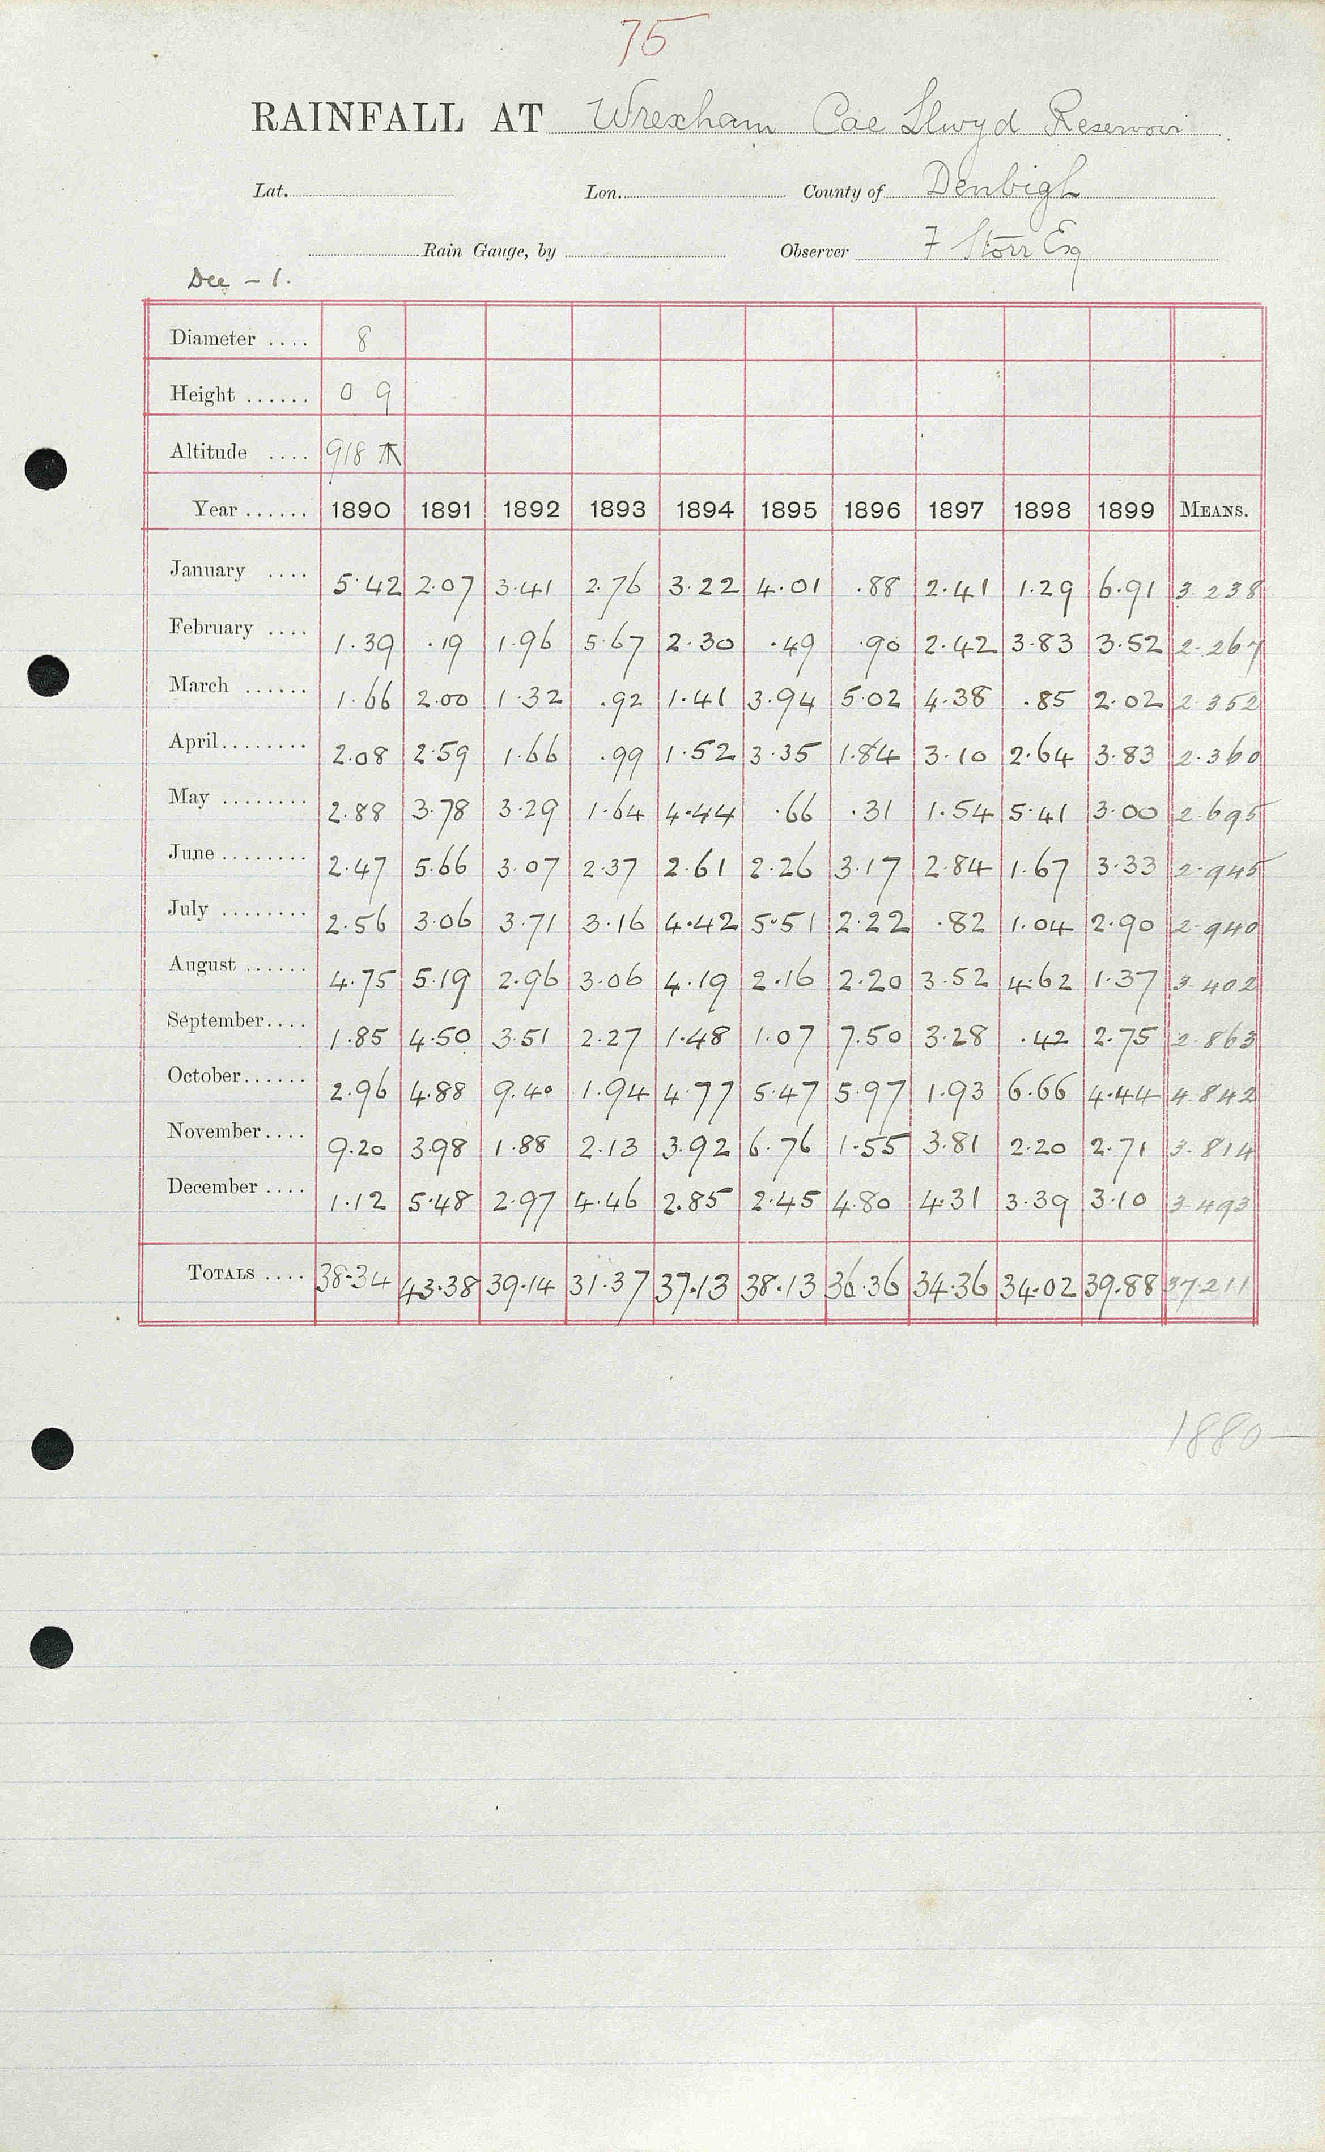 75
RAINFALL AT Wrexham Cae Llwyd Reservoir
Lat. Lon. County of Denbigh
Rain Gauge, by Observer F Storr Esq
Dee - 1.
Diameter .... 8
Height ...... 0 9
Altitude .... 918
Year ...... 1890 1891 1892 1893 1894 1895 1896 1897 1898 1899 MEANS.
January .... 5.42 2.07 3.41 2.76 3.22 4.01 .88 2.41 1.29 6.91 3.238
February .... 1.39 .19 1.96 5.67 2.30 .49 .90 2.42 3.83 3.52 2.267
March ...... 1.66 2.00 1.32 .92 1.41 3.94 5.02 4.38 .85 2.02 2.352
April ........ 2.08 2.59 1.66 .99 1.52 3.35 1.84 3.10 2.64 3.83 2.360
May ........ 2.88 3.78 3.29 1.64 4.44 .66 .31 1.54 5.41 3.00 2.695
June ........ 2.47 5.66 3.07 2.37 2.61 2.26 3.17 2.84 1.67 3.33 2.945
July ........ 2.56 3.06 3.71 3.16 4.42 5.51 2.22 .82 1.04 2.90 2.940
August ...... 4.75 5.19 2.96 3.06 4.19 2.16 2.20 3.52 4.62 1.37 3.402
September.... 1.85 4.50 3.51 2.27 1.48 1.07 7.50 3.28 .42 2.75 2.863
October...... 2.96 4.88 9.40 1.94 4.77 5.47 5.97 1.93 6.66 4.44 4.842
November.... 9.20 3.98 1.88 2.13 3.92 6.76 1.55 3.81 2.20 2.71 3.814
December .... 1.12 5.48 2.97 4.46 2.85 2.45 4.80 4.31 3.39 3.10 3.493
TOTALS .... 38.34 43.38 39.14 31.37 37.13 38.13 36.36 34.36 34.02 39.88 37.211
1880—